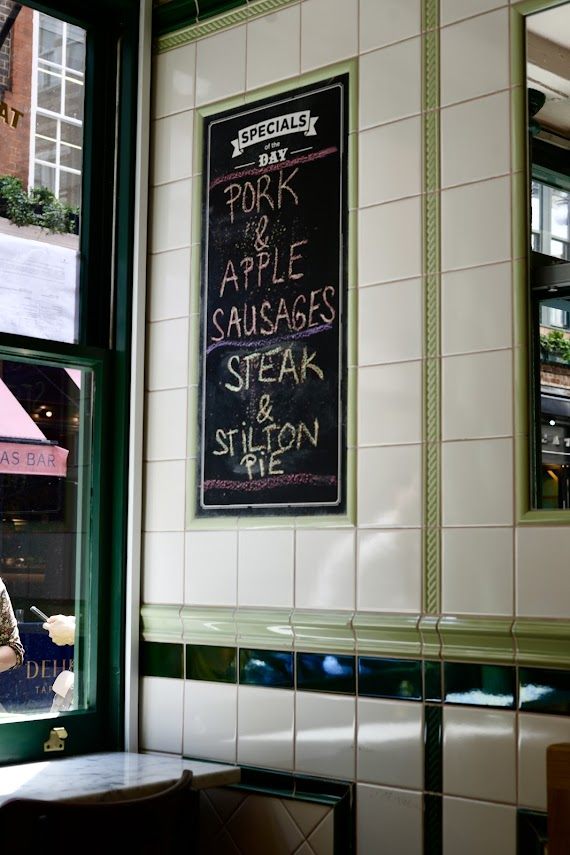 SPECIALS
of the
DAY
PORK
&
APPLE
SAUSAGES
STEAK
&
STILTON
PIE
AT
AS BAR